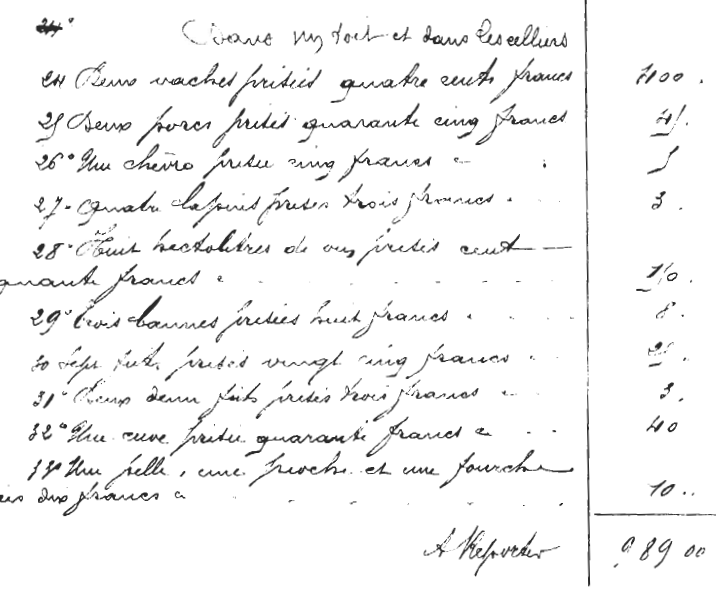 24° Dans un toit et dans les celliers
24 Deux vaches prisées quatre cents francs 400 .
25 Deux porcs prisés quarante cinq francs 45.
26° Une chèvre prisée cinq francs 5
27- Quatre lapins prisés trois francs . 3 .
28° Huit hectolitres de vin prisés cent
quante francs 150 .
29° trois bannes prisées huit francs . 8 .
30 Sept futs prisés vingt cinq francs . 25 .
31° Deux demi futs prisés trois francs 3 .
32° Une cuve prisée quarante francs 40
33° Une pelle, une pioche et une fourche
dix francs 10 ..
A Reporter 989 00